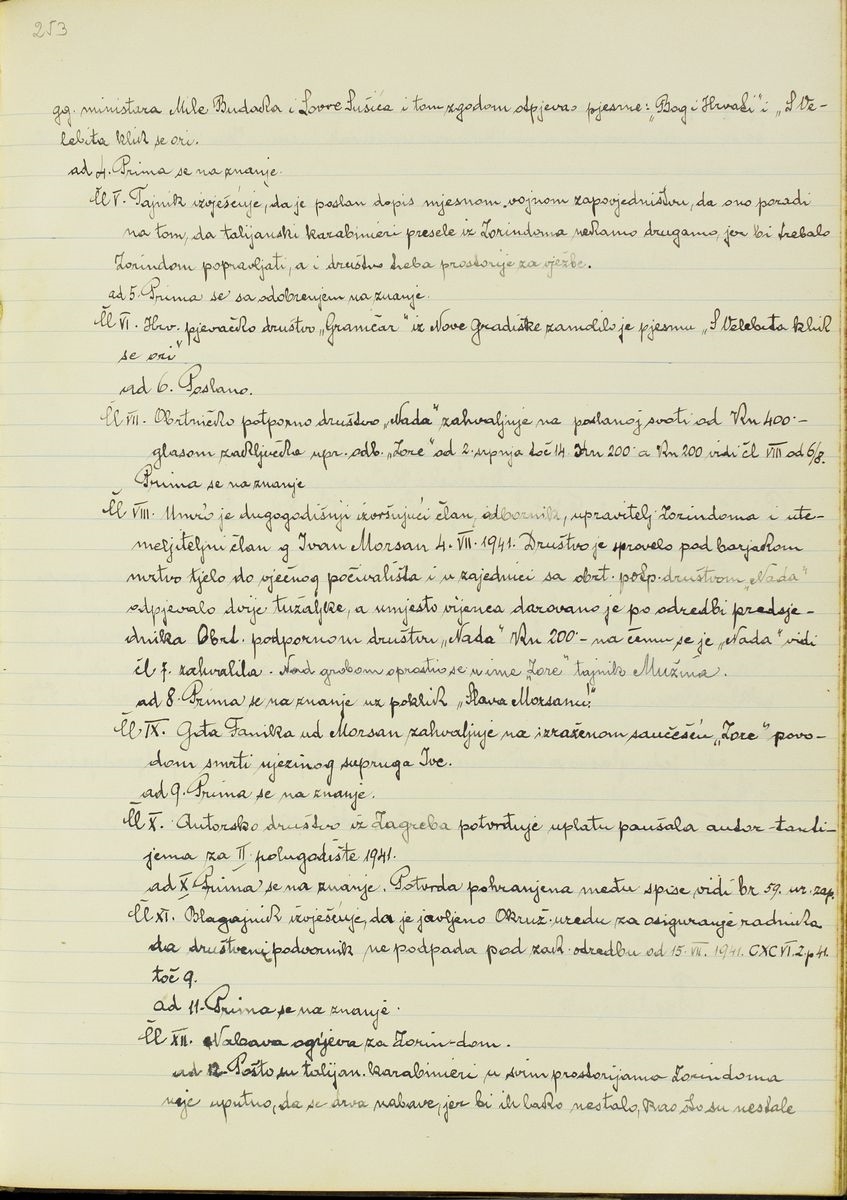 253
gg. ministara Mile Budaka i Lovre Sušića i tom zgodom otpjevao pjesme: „Bog i Hrvati" i „S Ve-
lebita klik se ori.
ad 4. Prima se na znanje.
Čl V. Tajnik izvješćuje, da je poslan dopis mjesnom vojnom zapovjedništvu, da ono poradi
na tom, da talijanski karabinieri presele iz Zorindoma, nekamo drugamo, jer bi trebalo
Zorindom popravljati, a i društvo treba prostorije za vježbe.
ad 5. Prima se sa odobrenjem na znanje.
Čl VI. Hrv. pjevačko društvo „Graničar" iz Nove Gradiške zamolilo je pjesmu „S Velebita klik
se ori"
ad 6. Poslano.
Čl VII. Obrtničko potporno društvo „Nada" zahvaljuje na poslanoj svoti od Kn 400·-
glasom zaključka upr. odb. „Zore" od 2. srpnja toč 14. Kn 200· a Kn 200 vidi čl VIII od 6/8.
Prima se na znanje
Čl VIII. Umro je dugogodišnji izvršujući član, odbornik, upravitelj Zorindoma i ute-
meljiteljni član g Ivan Morsan 4. VII. 1941. Društvo je sprovelo pod barjakom
mrtvo tjelo do vječnog počivališta i u zajednici sa obrt. potp. društvom „Nada"
odpjevalo dvije tužaljke, a umjesto vijenca darovano je po odredbi predsje-
dnika Obrt. podpornom društvu „Nada" Kn 200·- na čemu se je „Nada" vidi
čl 7. zahvalila. Nad grobom oprostio se u ime „Zore" tajnik Mužina.
ad 8. Prima se na znanje uz poklik „Slava Morsanu!"
Čl IX. Gđa Fanika ud Morsan zahvaljuje na izraženom saučešću „Zore" povo-
dom smrti njezinog supruga Ive.
ad 9. Prima se na znanje.
Čl X. Autorsko društvo iz Zagreba potvrđuje uplatu paušala autor-tanti-
jema za II. polugodište 1941.
ad X Prima se na znanje. Potvrda pohranjena među spise, vidi br 59. ur. zap.
Čl XI. Blagajnik izvješćuje, da je javljeno Okruž. uredu za osiguranje radnika
da društveni podvornik ne podpada pod zak. odredbu od 15. VII. 1941. CXCVI. 2. p 41.
toč 9.
ad 11. Prima se na znanje.
Čl XII. Nabava ogrjeva za Zorin-dom.
ad 12. Pošto su talijan. karabinieri u svim prostorijama Zorindoma
nije uputno, da se drva nabave, jer bi ih lako nestalo, kao što su nestale